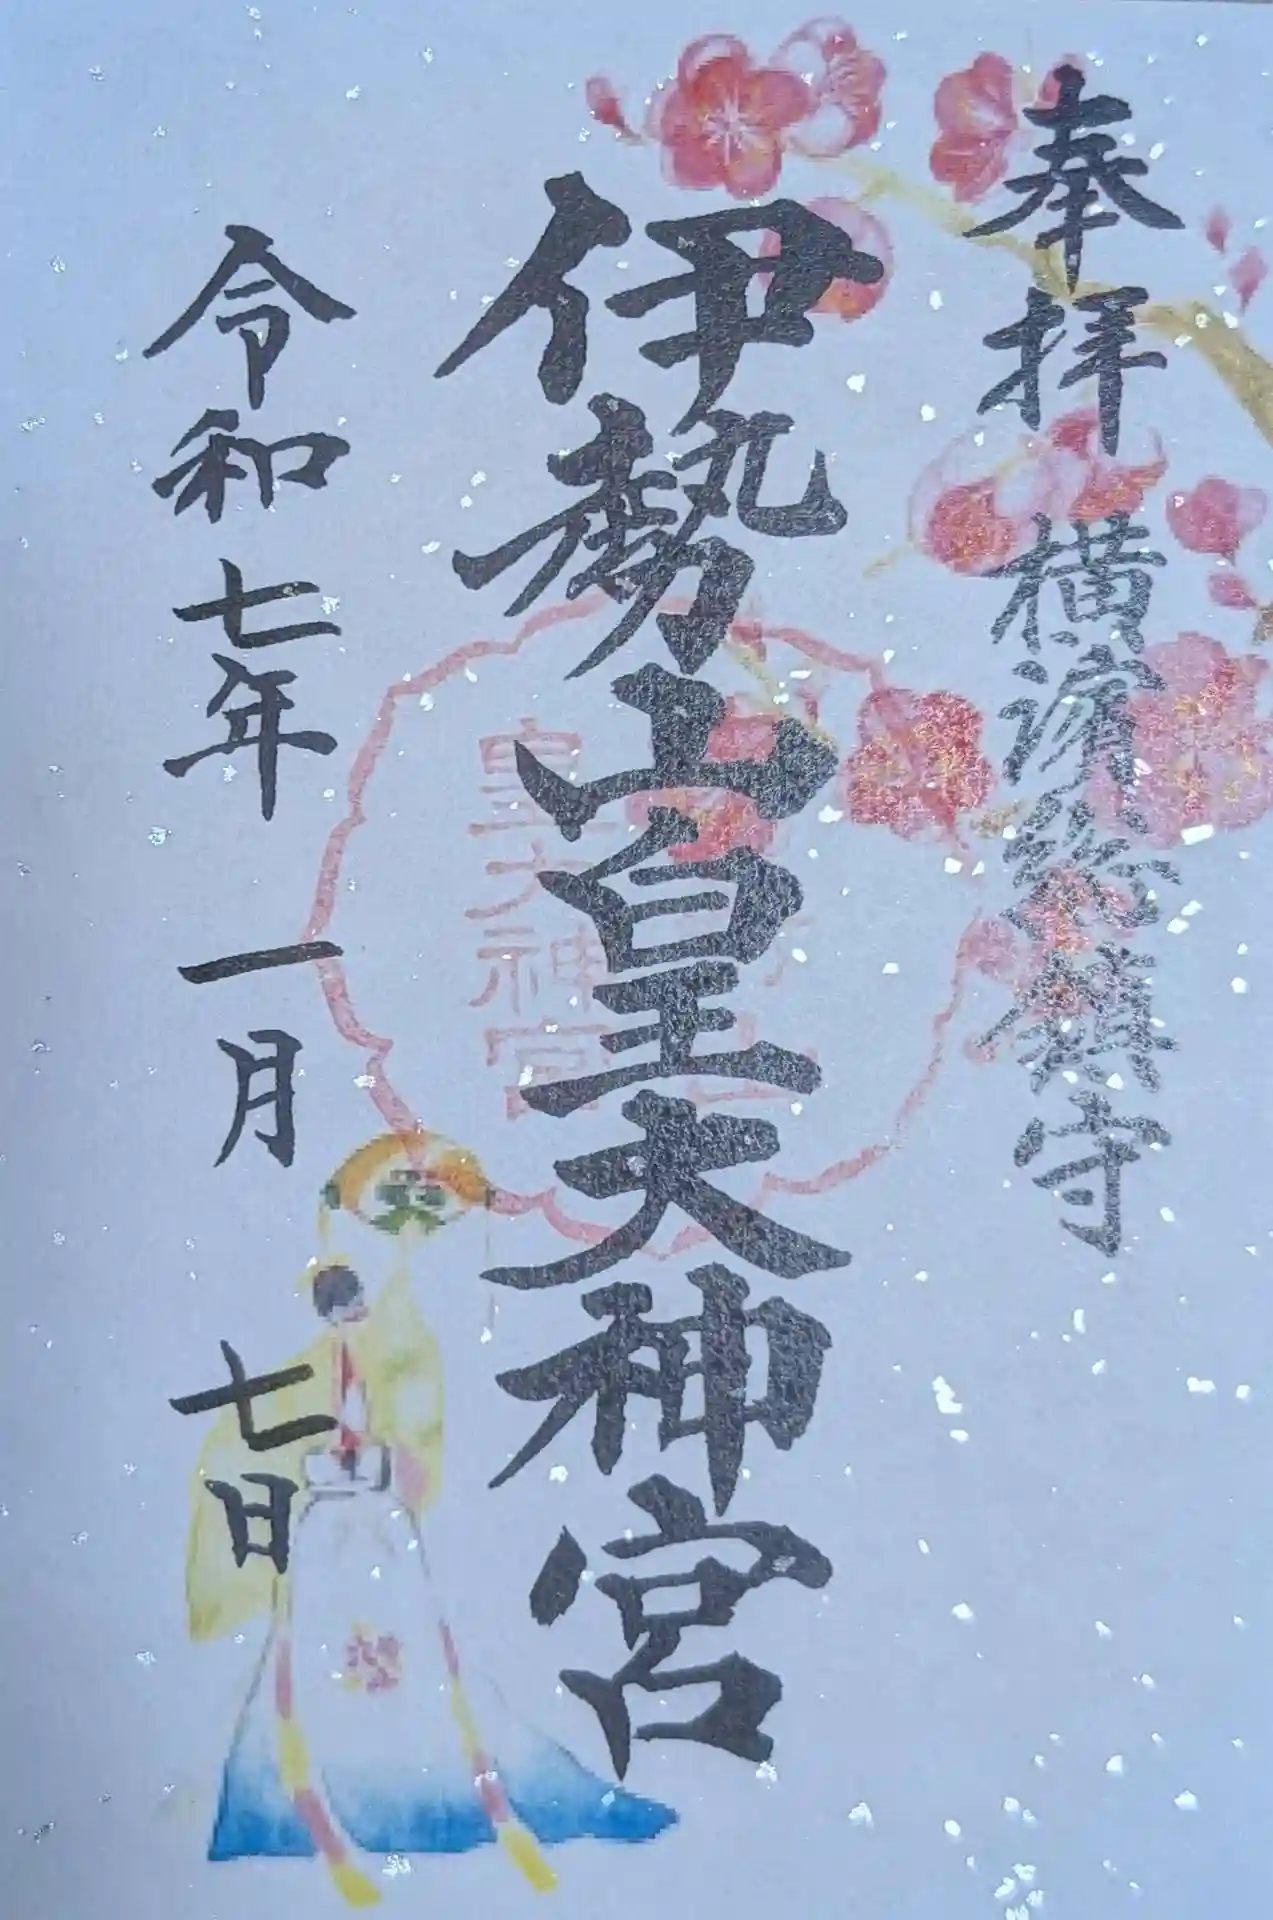 奉拝 横濱総鎮守
伊勢山皇大神宮
令和七年 一月 七日
皇大神宮